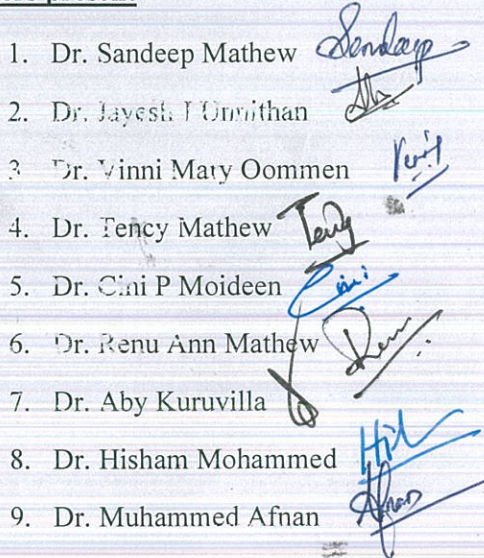 present
1. Dr. Sandeep Mathew Sandeep
2. Dr. Jayesh T Unnithan
3 Dr. Vinni Mary Oommen
4. Dr. Tency Mathew Tency
5. Dr. Cini P Moideen Cini
6. Dr. Renu Ann Mathew Renu
7. Dr. Aby Kuruvilla
8. Dr. Hisham Mohammed
9. Dr. Muhammed Afnan Afnan